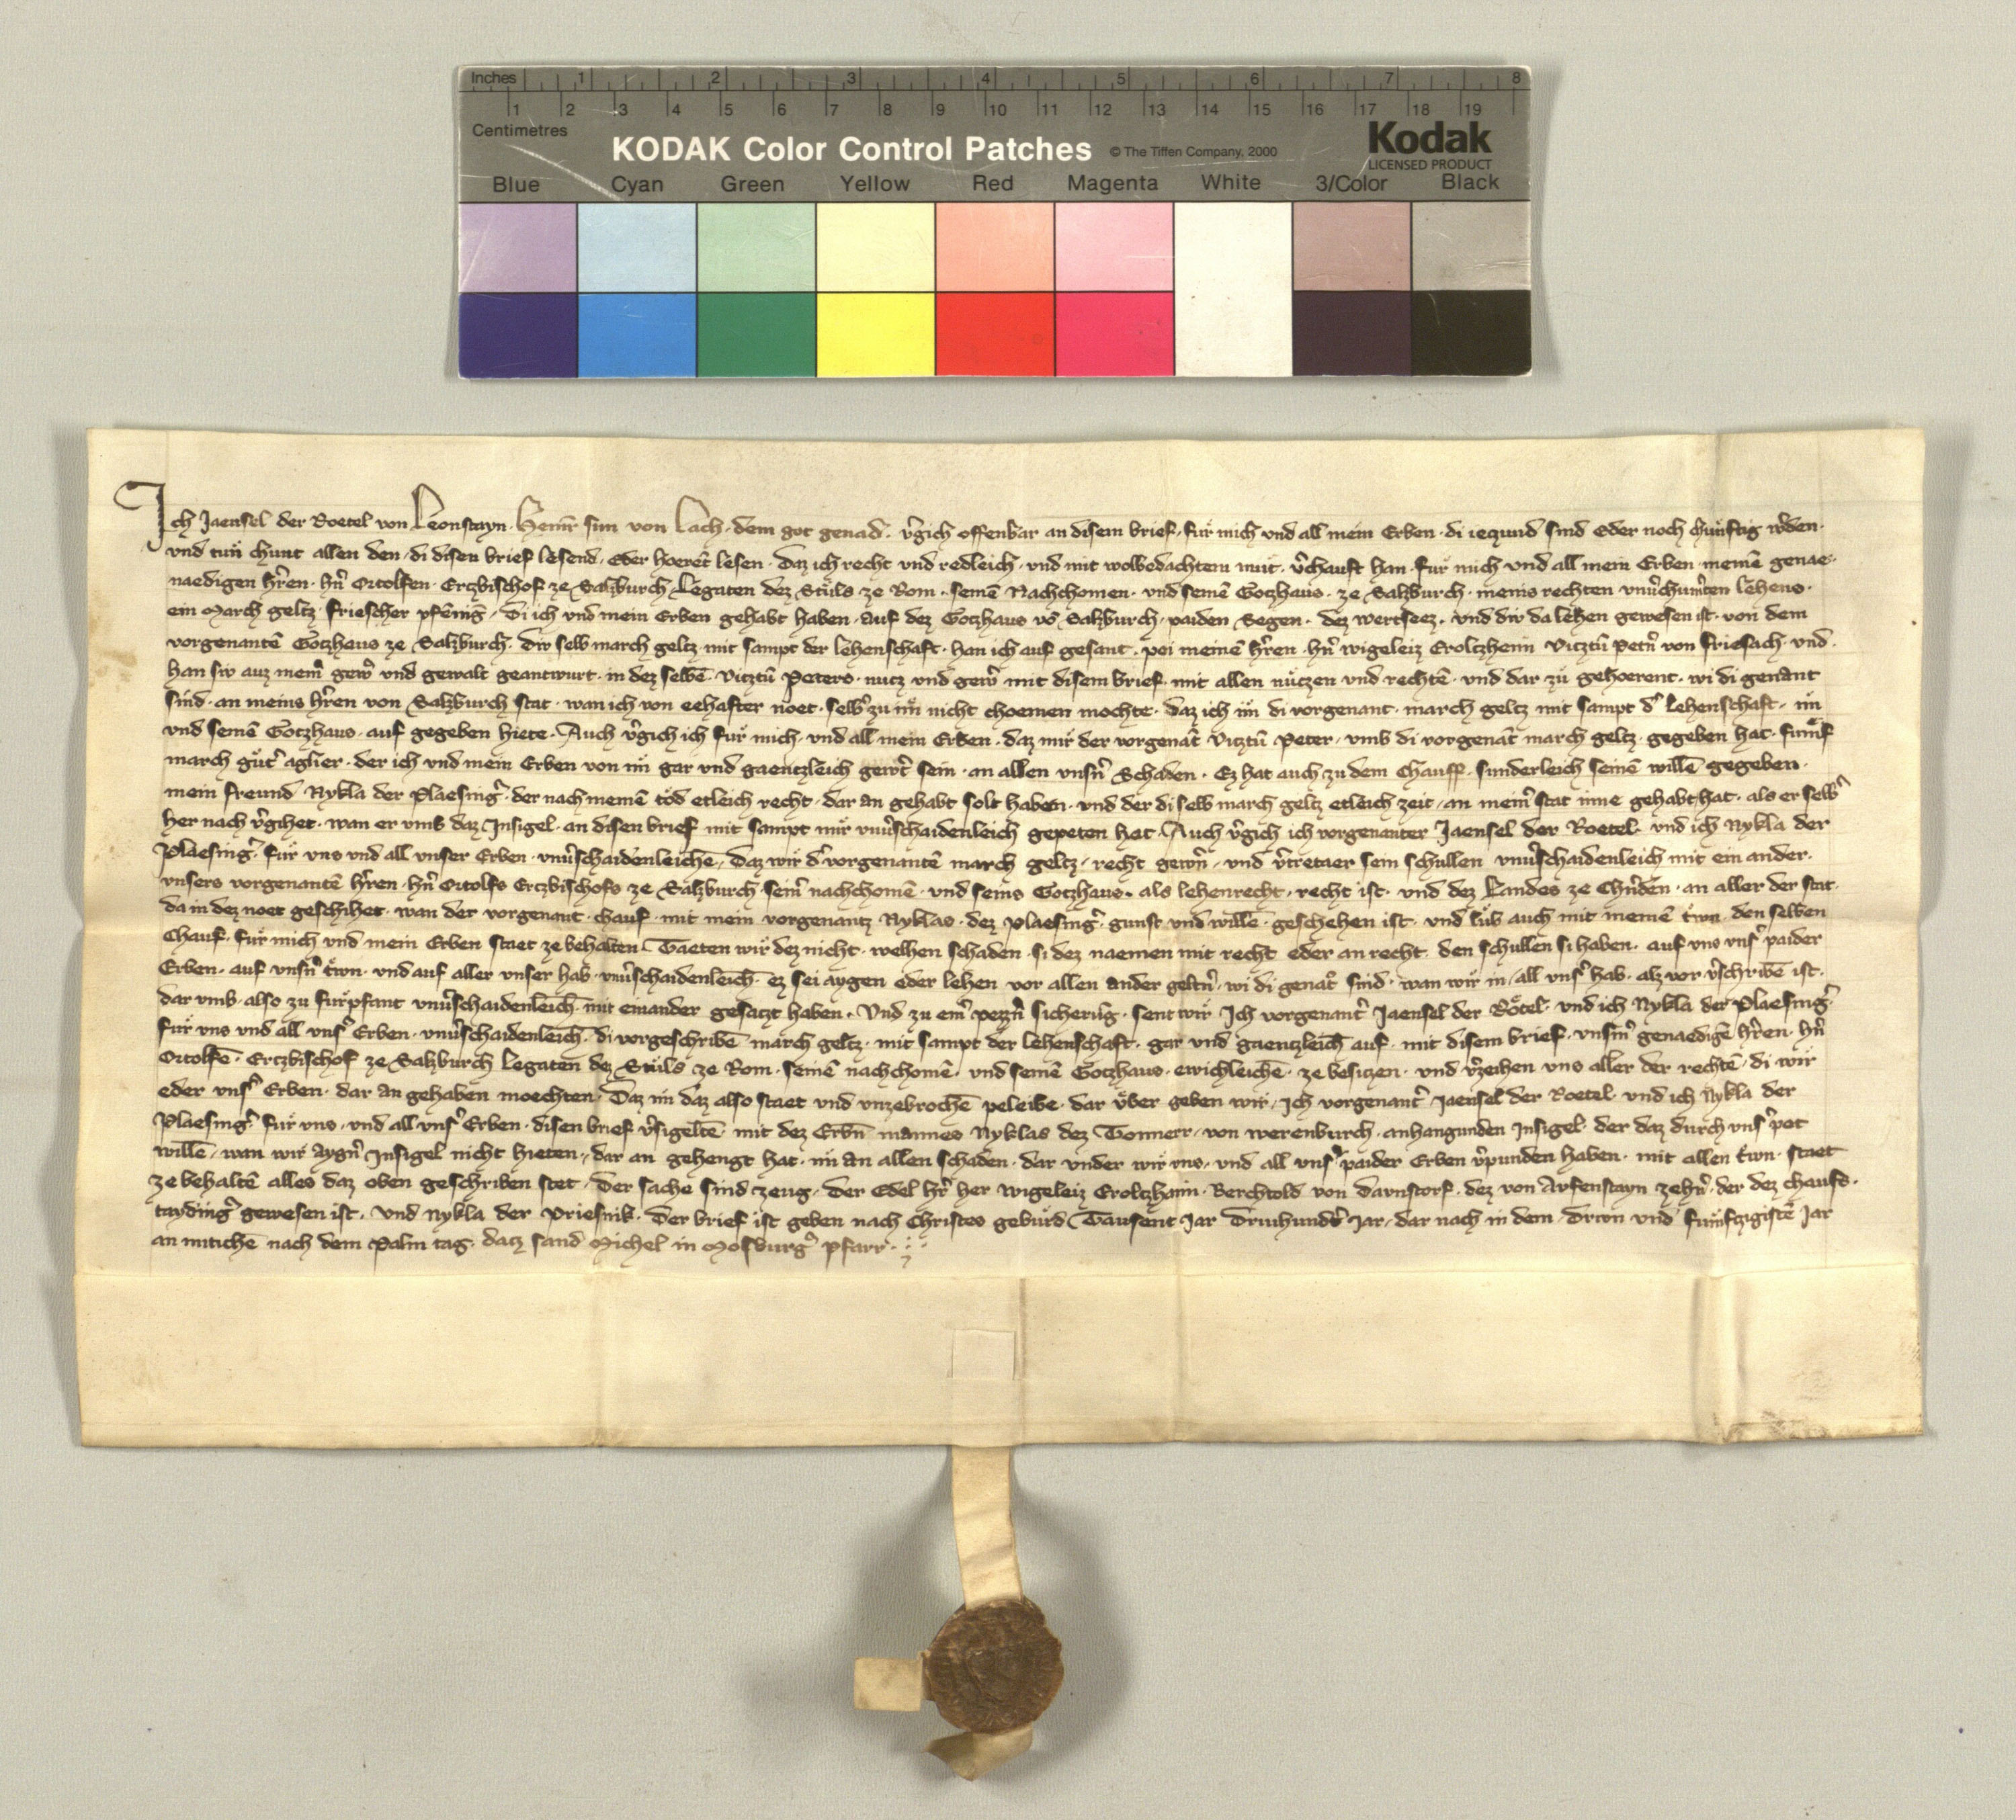 Inches 1 2 3 4 5 6 7 8
1 2 3 4 5 6 7 8 9 10 11 12 13 14 15 16 17 18 19
Centimetres
KODAK Color Control Patches © The Tiffen Company, 2000 Kodak
LICENSED PRODUCT
Blue Cyan Green Yellow Red Magenta White 3/Color Black
Ich Jaensel der Roetel von Leonstayn · Heinr̄ sun von Lach · dem got genad · v̄gich offenbar an disem brief · fuͤr mich und all mein Erben · di iezund sind Eder noch chuͤnftig w̄den ·
und tuͤn chunt allen den · di disen brief lesend · Eder hoerēt lesen · Daz ich recht und redleich · und mit wolbedachtem muͤt · v̄chauft han · fuͤr mich und all mein Erben · meinē genae-
naedigen hr̄ren · hn̄ Ortolfen · Erczbischof ze Salzburch Legaten dez Stuͤls ze Rom · seinē Nachchomen · und seinē Gotzhaus · ze Salzburch · meins rechten lehens ·
ein March geltz friescher pfēnig · Di ich und mein Erben gehabt haben · auf dez Gotzhaus vō Salzburch · paiden Segen · dez wertsees · und diw da lehen gewesen ist · von dem
vorgenantē Gotzhaus ze Salzburch · diw selb march geltz mit sampt der lehenschaft · han ich auf gesant · pei meinem hr̄ren · hn̄ wigeleiz Erolczheim Vicztū petn̄ von friesach · und ·
han siw auz mein̄ gew̄ und gewalt geantwurt · in dez selbē · Vicztū Peters · nucz und gew̄ mit disem brief · mit allen nuͤczen und rechtē · und dar zuͤ gehoerent · wi di genant
sind · an meins hr̄ren von Salzburch stat · wan ich von eehafter noet · selb̄ zu im nicht choemen mochte · daz ich im di vorgenant · march geltz mit sampt d̄ lehenschaft · im
und seinē Gotzhaus · auf gegeben hiete · Auch v̄gich ich fuͤr mich · und all mein Erben · daz mir der vorgenāt Vicztū Peter · umb di vorgenāt march geltz · gegeben hat · fuͤmf
march guͤt̄ aglier · der ich und mein Erben von im gar und gaentzleich gew̄t sein · an allen unsn̄ Schaden · Ez hat auch zu dem Chauff · sunderleich seinē willē gegeben ·
mein freund Nykla der Plaesinḡ · der nach meinē tod etleich recht · dar an gehabt solt haben · und der di selb march geltz etleich zeit · an mein̄ stat inne gehabt hat · als er selb̄
her nach v̄gihet · wan er umb daz Insigel · an disen brief mit sampt mir unv̄schaidenleich gepeten hat · Auch v̄gich ich vorgenanter Jaensel der Roetel · und ich Nykla der
Plaesinḡ · fuͤr uns und all unser Erben · unv̄schaidenleichē · Daz wir d̄ vorgenantē march geltz · recht gew̄n · und v̄tretaer sein schullen unv̄schaidenleich mit ein ander ·
unsers vorgenantē hr̄ren · hn̄ Ortolfs Erczbischofs ze Salzburch · sein̄ nachchomē · und seins Gotzhaus · als lehenrecht · recht ist · und dez Landes ze Chn̄den · an aller der stat ·
da in dez noet geschihet · wan der vorgenant · chauf · mit mein vorgenantz Nyklas · dez plaesinḡ · gunst und willē · geschehen ist · und luͤb auch mit meinē trewn · den selben
Chauf · fuͤr mich und mein Erben staet ze behalten · Taeten wir dez nicht · welhen schaden · si dez naemen mit recht eder an recht · den schullen si haben · auf uns uns̄ paider
Erben · auf unsn̄ trewn · und auf aller unser hab · unv̄schaidenleich · ez sei aygen eder lehen vor allen ander geltn̄ · wi di genāt sind · wan wir in all uns̄ hab · alz vor v̄schribē ist ·
dar umb · also zu fuͤrpfant unv̄schaidenleich · mit einander gesaczt haben · Und zu ein̄ pezzn̄ sicherūg · sent wir Ich vorgenant̄ Jaensel der Roͤtel · und ich Nykla der Plaesinḡ
fuͤr uns und all uns̄ Erben · unv̄schaidenleich · di vorgeschribē march geltz · mit sampt der lehenschaft · gar und gaentzleich auf · mit disem brief · unsm̄ genaedigē hr̄ren · hn̄
Ortolfē · Erczbischof ze Salzburch Legaten dez Stuͤls ze Rom · seinē nachchomē · und seinē Gotzhaus · ewichleichē · ze besiczen · und v̄zeihen uns aller der rechtē · di wir
eder uns̄ Erben · dar an gehaben moechten · Daz im daz also staet und unzebrochē peleibe · dar uͤber geben wir · Ich vorgenant̄ Jaensel der Roetel · und ich Nykla der
Plaesinḡ fuͤr uns · und all uns̄ Erben · disen brief v̄sigeltē · mit dez Erbn̄ mannes Nyklas dez Tonnerr · von werenburch · anhangunden Insigel · der daz durch uns̄ pet
willē · wan wir aygn̄ Insigel nicht hieten · dar an gehengt hat · im an allen schaden · dar under wir uns · und all uns̄ paider Erben v̄punden haben · mit allen trewn · staet
ze behaltē alles daz oben geschriben stet · Der sache sind zeug · Der Edel hr̄ her wigeleiz Erolczhaim · Berchtold von Darnstorf · dez von Aufenstayn zehn̄ · der dez chaufs ·
taydinḡ gewesen ist · und Nykla der Priesnik · Der brief ist geben nach Christes gebuͤrd Tausent Jar Driuhundt̄ Jar · dar nach in dem · Driwn und fuͤmfczigistē Jar
an mitichē nach dem Palm tag · datz sand Michel in Mosburḡ pfarr ·